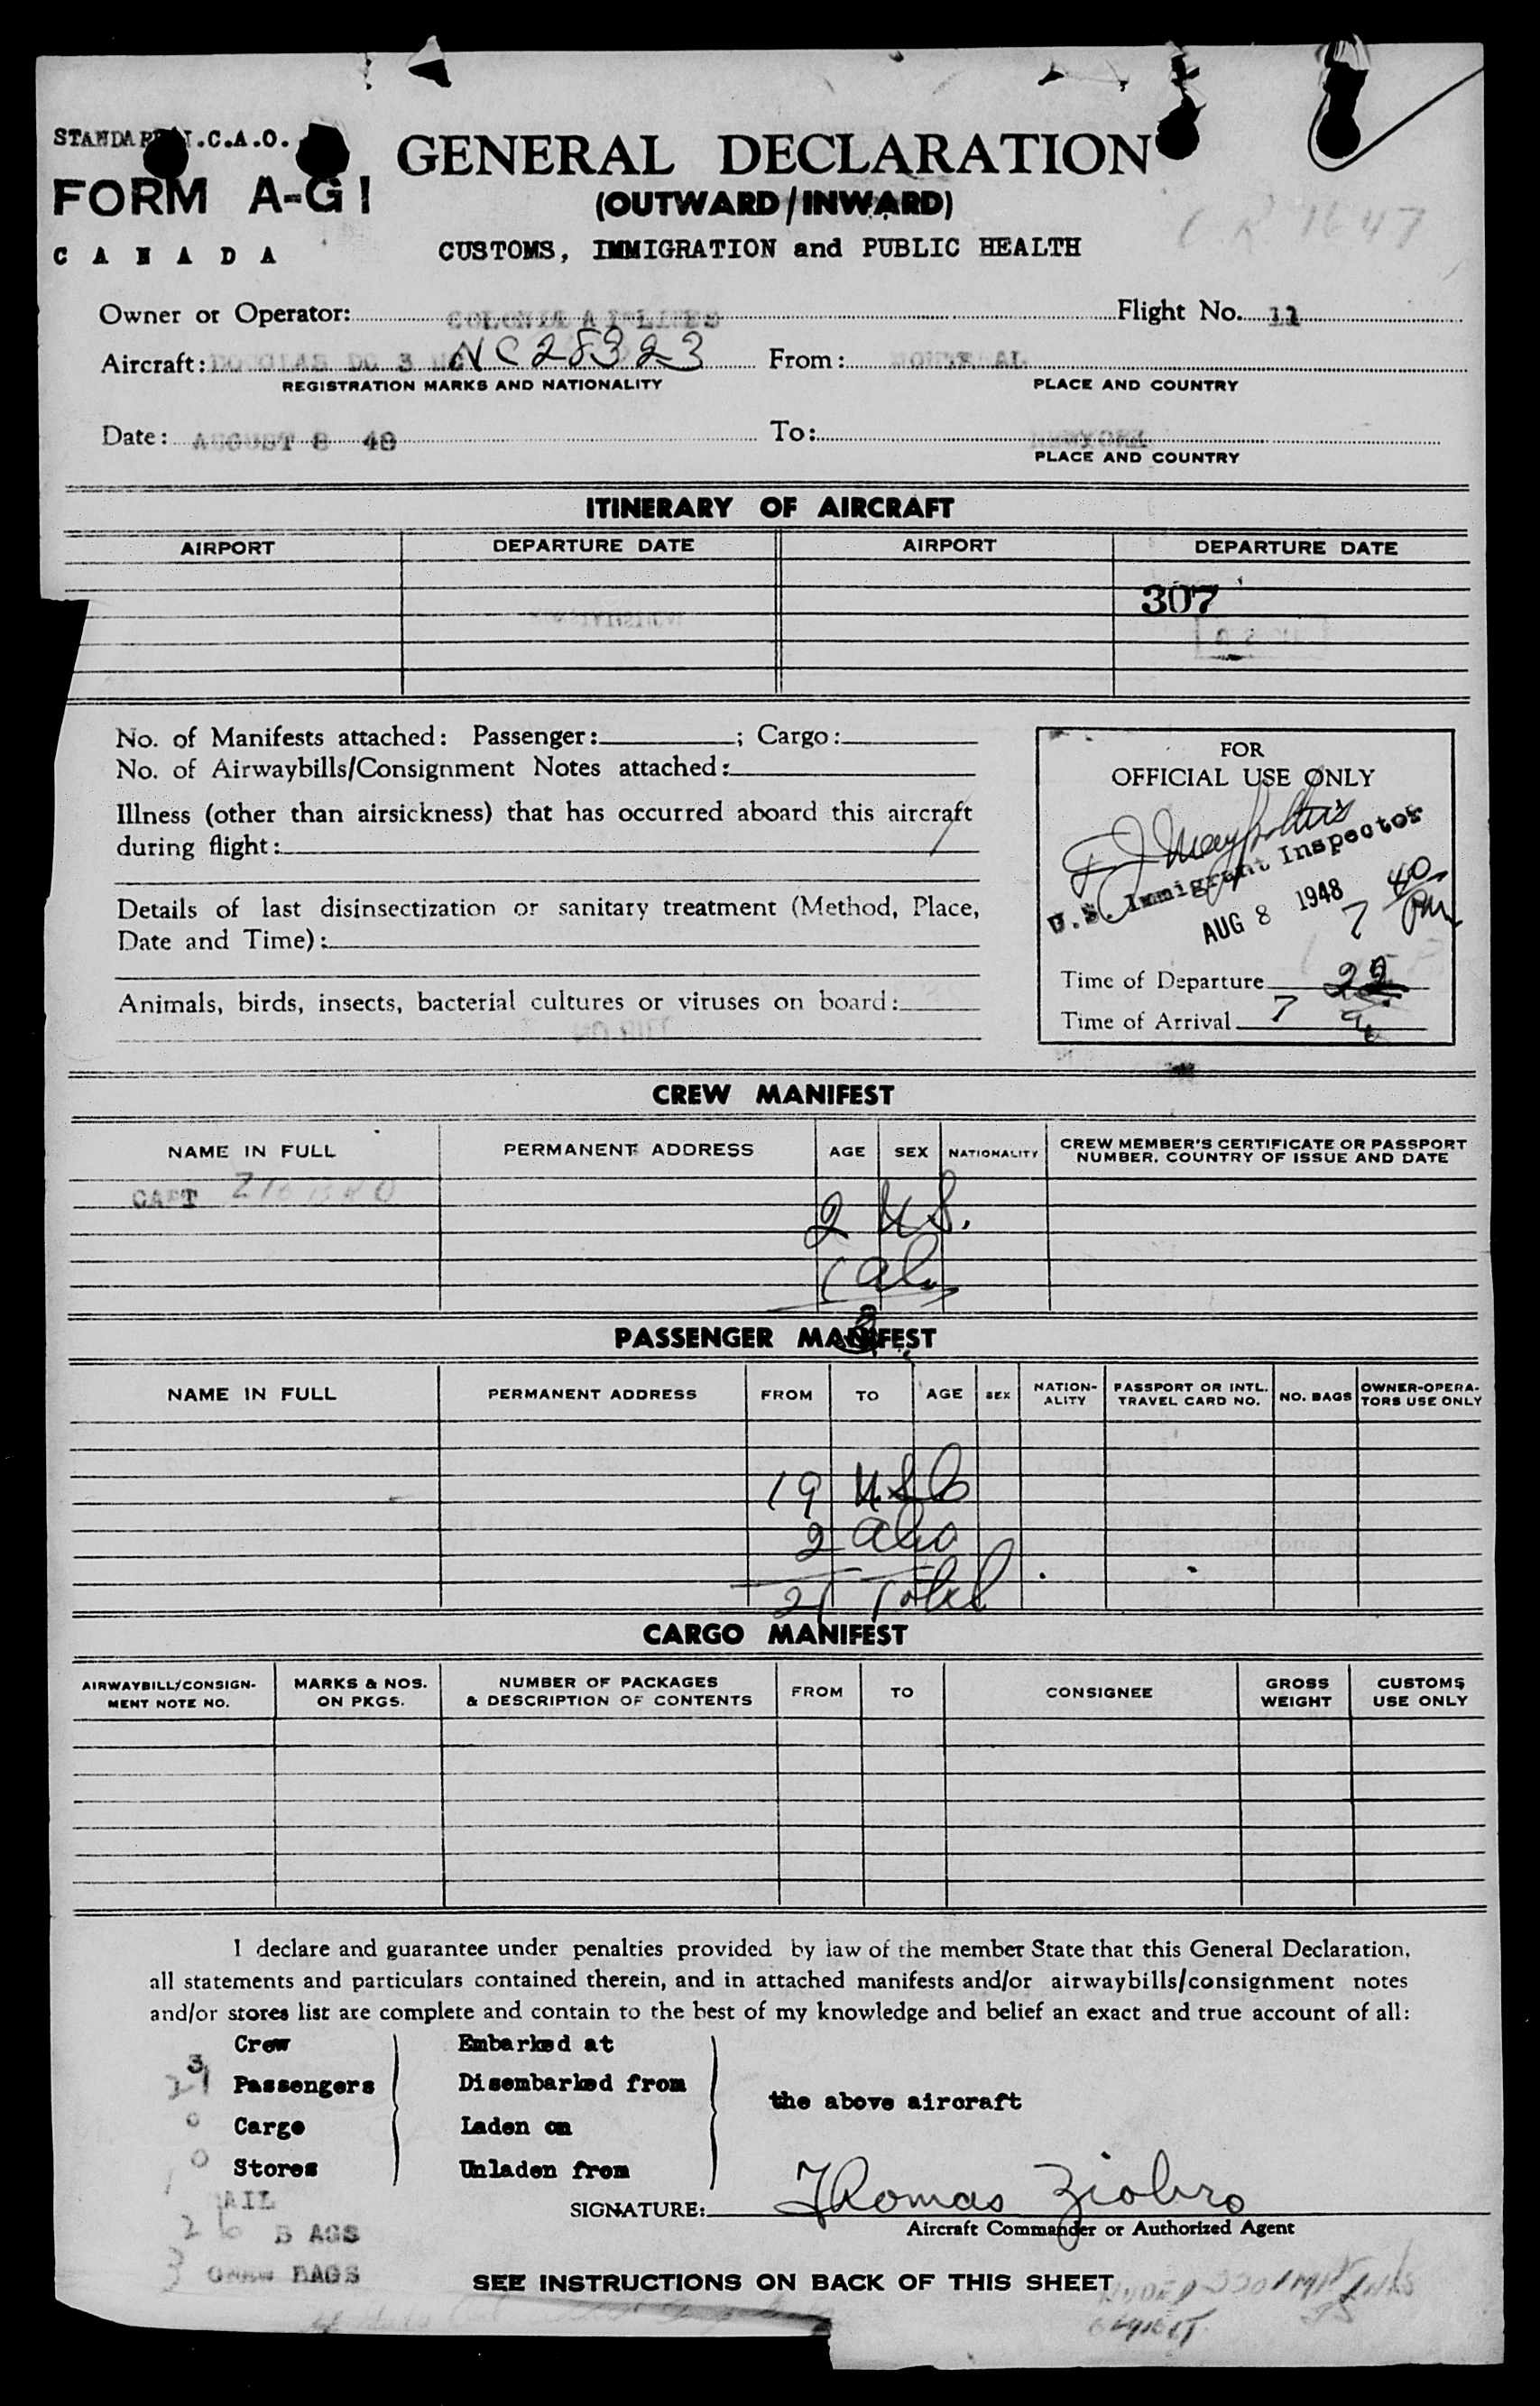 STANDARD I.C.A.O.
FORM A-G1
CANADA
GENERAL DECLARATION
(OUTWARD/INWARD)
CUSTOMS, IMMIGRATION and PUBLIC HEALTH
Owner or Operator: COLONIAL AIRLINES Flight No. 11
Aircraft: DOUGLAS DC 3 NC 28323 From: MONTREAL
REGISTRATION MARKS AND NATIONALITY PLACE AND COUNTRY
Date: AUGUST 8 48 To: NEWYORK
PLACE AND COUNTRY
ITINERARY OF AIRCRAFT
AIRPORT DEPARTURE DATE AIRPORT DEPARTURE DATE
307
No. of Manifests attached: Passenger: ; Cargo:
No. of Airwaybills/Consignment Notes attached:
Illness (other than airsickness) that has occurred aboard this aircraft
during flight:
Details of last disinsectization or sanitary treatment (Method, Place,
Date and Time):
Animals, birds, insects, bacterial cultures or viruses on board:
FOR
OFFICIAL USE ONLY
U.S. Immigrant Inspector
AUG 8 1948 7 40 PM
Time of Departure
Time of Arrival 7
CREW MANIFEST
NAME IN FULL PERMANENT ADDRESS AGE SEX NATIONALITY CREW MEMBER'S CERTIFICATE OR PASSPORT NUMBER, COUNTRY OF ISSUE AND DATE
CAPT ZIOBRO
2 US.
3
PASSENGER MANIFEST
NAME IN FULL PERMANENT ADDRESS FROM TO AGE SEX NATION-ALITY PASSPORT OR INTL. TRAVEL CARD NO. NO. BAGS OWNER-OPERA-TORS USE ONLY
19 USC
2
21 Total
CARGO MANIFEST
AIRWAYBILL/CONSIGN-MENT NOTE NO. MARKS & NOS. ON PKGS. NUMBER OF PACKAGES & DESCRIPTION OF CONTENTS FROM TO CONSIGNEE GROSS WEIGHT CUSTOMS USE ONLY
I declare and guarantee under penalties provided by law of the member State that this General Declaration,
all statements and particulars contained therein, and in attached manifests and/or airwaybills/consignment notes
and/or stores list are complete and contain to the best of my knowledge and belief an exact and true account of all:
3 Crew Embarked at
21 Passengers Disembarked from
the above aircraft
0 Cargo Laden on
0 Stores Unladen from
MAIL
26 BAGS
3 CREW BAGS
SIGNATURE: Thomas Ziobro
Aircraft Commander or Authorized Agent
SEE INSTRUCTIONS ON BACK OF THIS SHEET